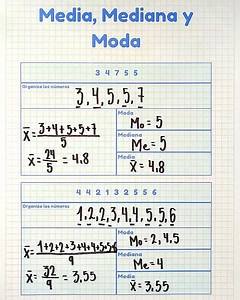 Media, Mediana y
Moda
3 4 7 5 5
Organiza los números
3, 4, 5, 5, 7
Moda
Mo = 5
X̄ = 3+4+5+5+7
5
Mediana
Me = 5
X̄ = 24
5 = 4.8
Media
X̄ = 4.8
4 4 2 1 3 2 5 5 6
Organiza los números
1, 2, 2, 3, 4, 4, 5, 5, 6
Moda
Mo = 2, 4, 5
X̄ = 1+2+2+3+4+4+5+5+6
9
Mediana
Me = 4
X̄ = 32
9 = 3,55
Media
X̄ = 3,55